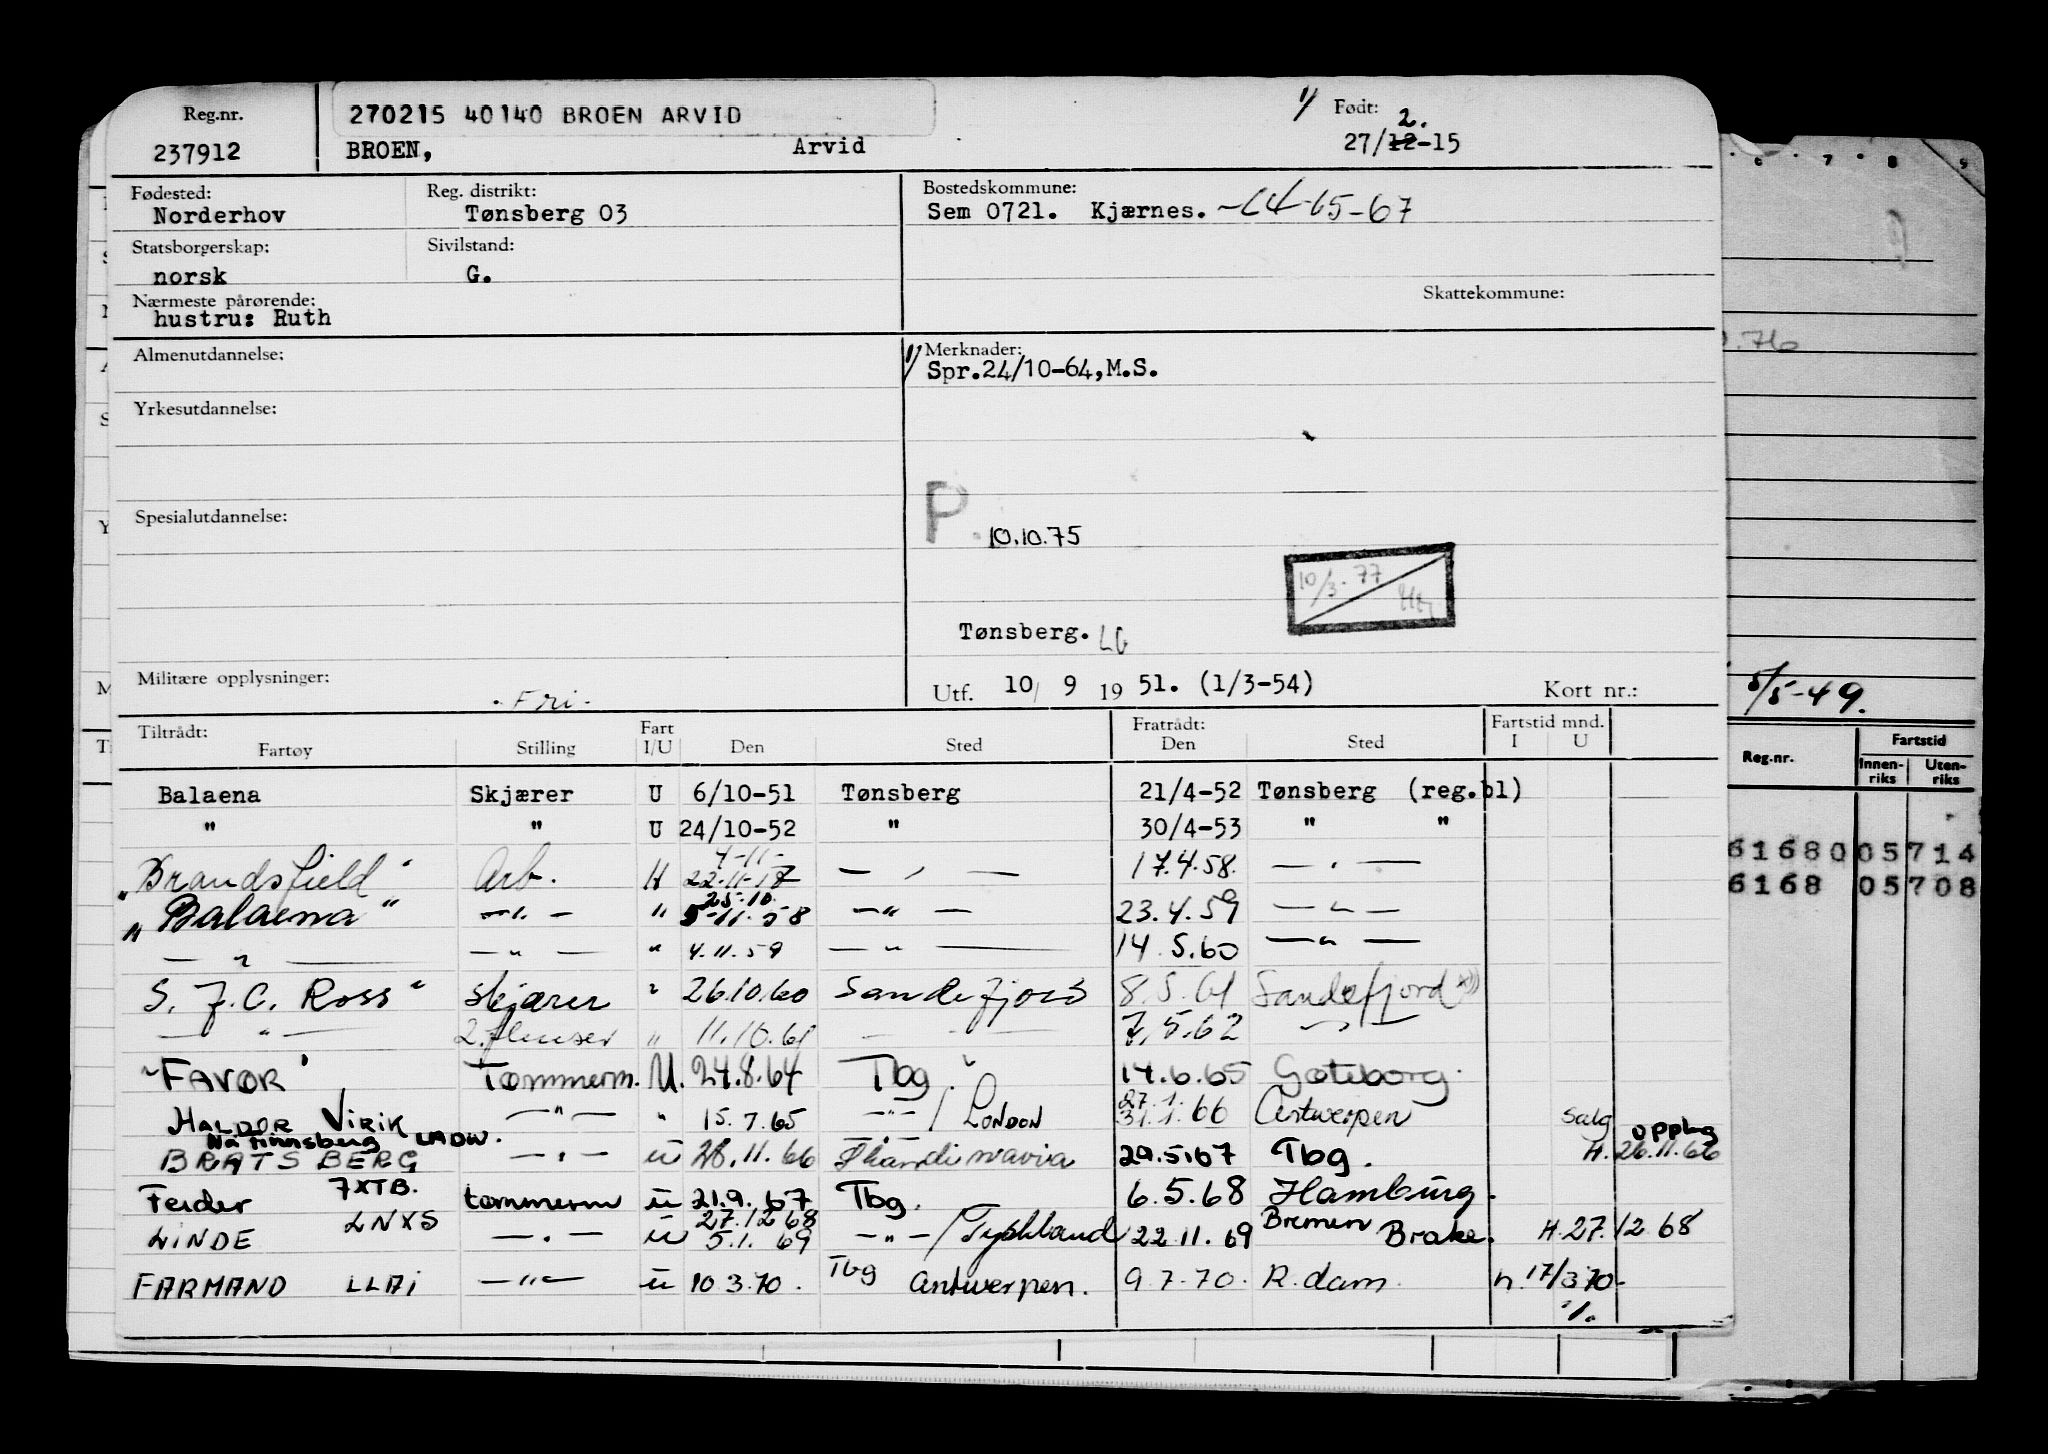 Reg.nr. 270215 40140 BROEN ARVID 1/ Født: 2.
237912 BROEN, Arvid 27/12-15
Fødested: Reg. distrikt: Bostedskommune:
Norderhov Tønsberg 03 Sem 0721. Kjærnes. -64-65-67
Statsborgerskap: Sivilstand:
norsk G.
Nærmeste pårørende: Skattekommune:
hustru: Ruth
Almenutdannelse: 1/ Merknader:
Spr.24/10-64,M.S.
Yrkesutdannelse:
Spesialutdannelse: P. 10.10.75
10/3-77
Tønsberg. LG
Militære opplysninger: Fri. Utf. 10/ 9 19 51. (1/3-54) Kort nr.: 5/5-49.
Tiltrådt: Fart Fratrådt: Fartstid mnd.
Fartøy Stilling I/U Den Sted Den Sted I U
Reg.nr. Fartstid
Innen-riks Uten-riks
Balaena Skjærer U 6/10-51 Tønsberg 21/4-52 Tønsberg (reg.bl)
" " U 24/10-52 " 30/4-53 " "
4-11-
"Brandsfield" Arb. 22-11-57 — " — 17.4.58. — " —
61680 05714
25-10.
"Balaena" — " — " 5-11-58 — " — 23.4.59 — " —
6168 05708
— " — — " — " 4.11.59 — " — 14.5.60 — " —
S. J.C. Ross" skjærer " 26.10.60 Sandefjord 8.5.61 Sandefjord
— " — 2.flenser " 11.10.61 — 7.5.62 — " —
"FAVOR" Tømmerm. U. 24.8.64 Tbg. 14.6.65 Gøteborg.
27.1.
HALDOR VIRIK — " — " 15.7.65 — " — / LONDON 31.1.66 Antwerpen Salg
Nå Finnsberg LADW. opphg
BRATSBERG — " — U 28.11.66 Skandinavia 29.5.67 Tbg. H. 26.11.66
Feider 7XTB. tømmerm U 21.9.67 Tbg. 6.5.68 Hamburg.
27.12.68 Bremen
LINDE LNXS — " — U 5.1.69 — " — / Tyskland 22.11.69 Brake. H.27.12.68
FARMAND LLAI — " — U 10.3.70. Tbg Antwerpen. 9.7.70. R.dam. h. 17/3 70.